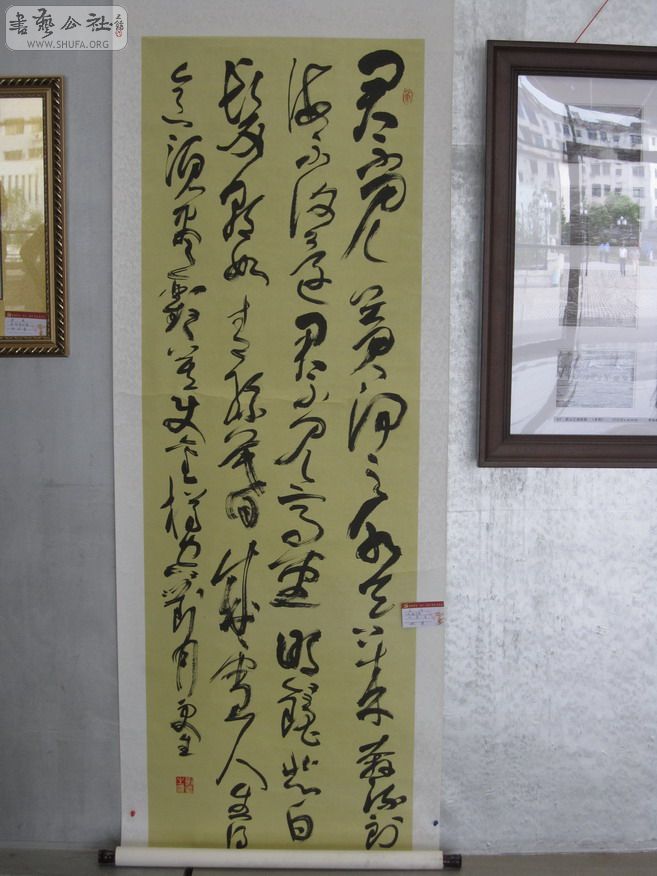 書藝公社
WWW.SHUFA.ORG
君不見黃河之水天上來奔流到
海不復還君不見高堂明鏡悲白
髮朝如青絲暮成雪人生得
意須盡歡莫使金樽空對月